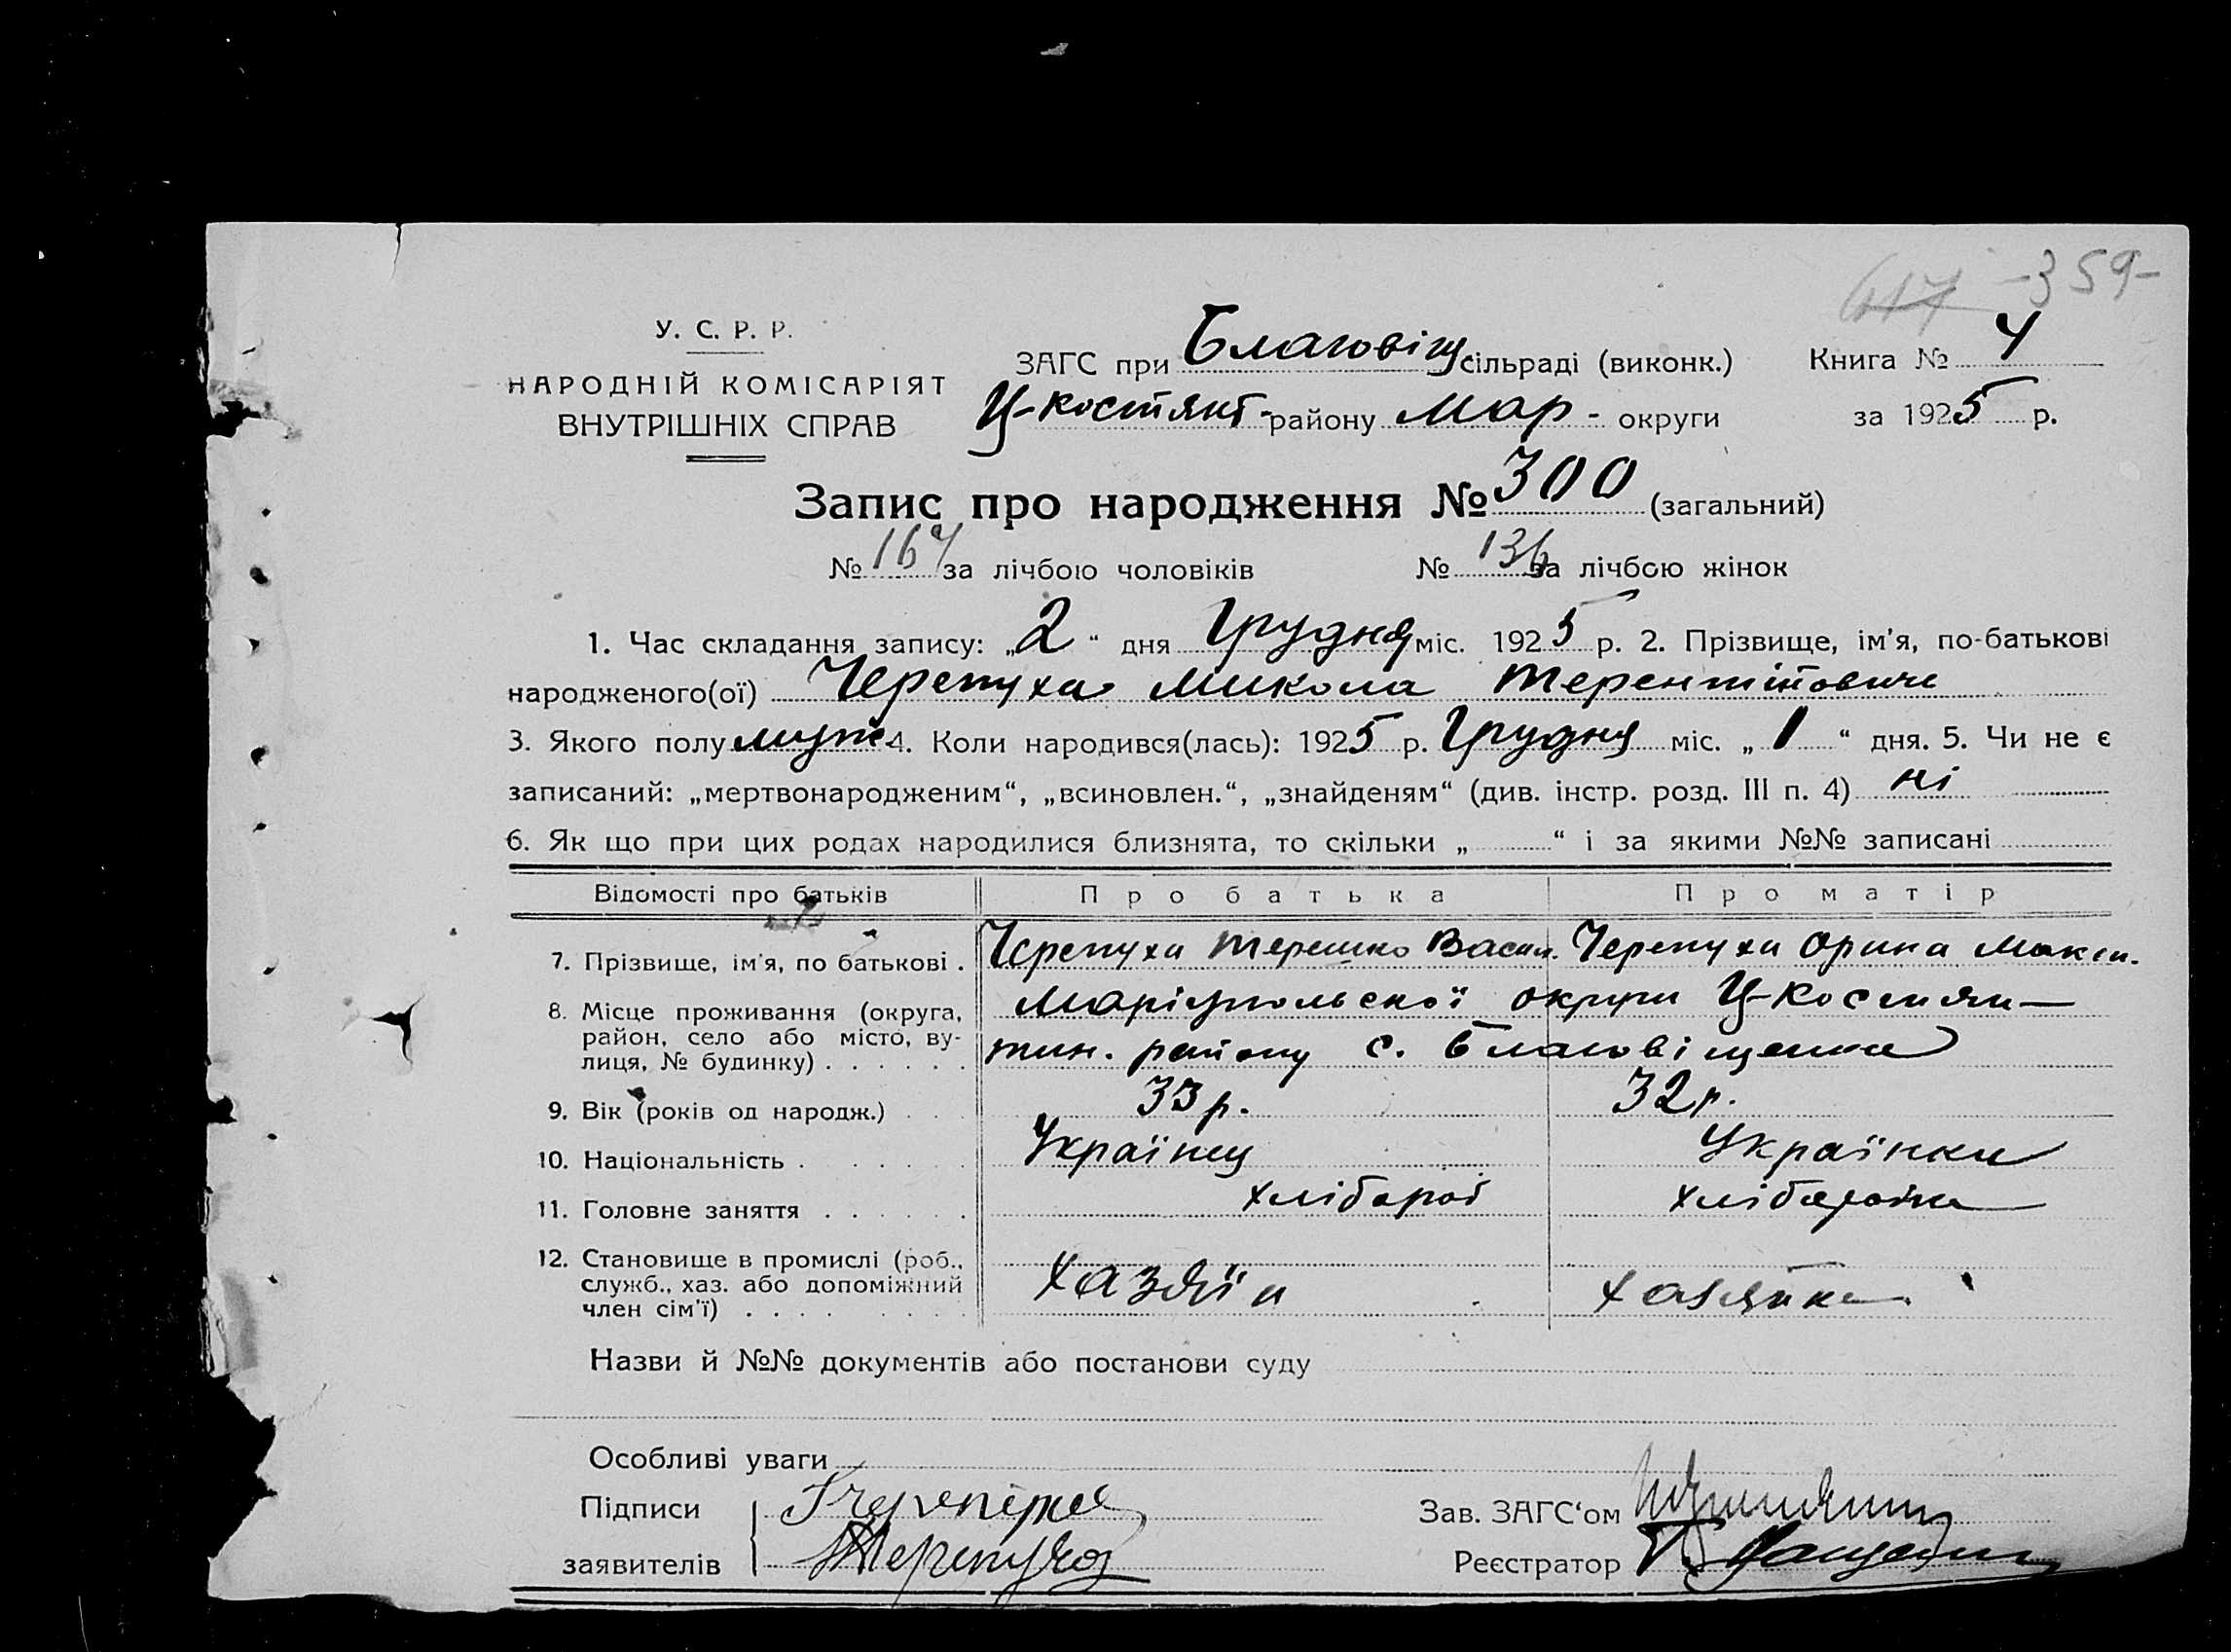 417 -359-
У. С. Р. Р.
НАРОДНІЙ КОМІСАРІЯТ
ВНУТРІШНІХ СПРАВ
ЗАГС при Благовіщ сільраді (виконк.) Книга № 4
Ц-Костянт- району Мар- округи за 1925 р.
Запис про народження № 300 (загальний)
№ 164 за лічбою чоловіків № 136 за лічбою жінок
1. Час складання запису: „2“ дня Грудня міс. 1925 р. 2. Прізвище, ім'я, по-батькові
народженого(ої) Черепуха Микола Терентійович
3. Якого полу муж 4. Коли народився(лась): 1925 р. Грудня міс. „1“ дня. 5. Чи не є
записаний: „мертвонародженим“, „всиновлен.“, „знайденям“ (див. інстр. розд. III п. 4) ні
6. Як що при цих родах народилися близнята, то скільки „ “ і за якими №№ записані
Відомості про батьків Про батька Про матір
7. Прізвище, ім'я, по батькові . Черепуха Терешко Васил. Черепуха Орина Макси.
8. Місце проживання (округа, район, село або місто, ву-лиця, № будинку) . . . . . . Маріупольської округи Ц-Костян-
тин. району с. Благовіщенка
9. Вік (років од народж.) . . 33 р. 32 р.
10. Національність . . . . . . Українец Українка
11. Головне заняття . . . . . . хлібороб хліборобка
12. Становище в промислі (роб., служб., хаз. або допоміжний член сім'ї) . . . . хазяїн хазяйка
Назви й №№ документів або постанови суду
Особливі уваги
Підписи
заявителів Черепуха
Зав. ЗАГС'ом
Реєстратор